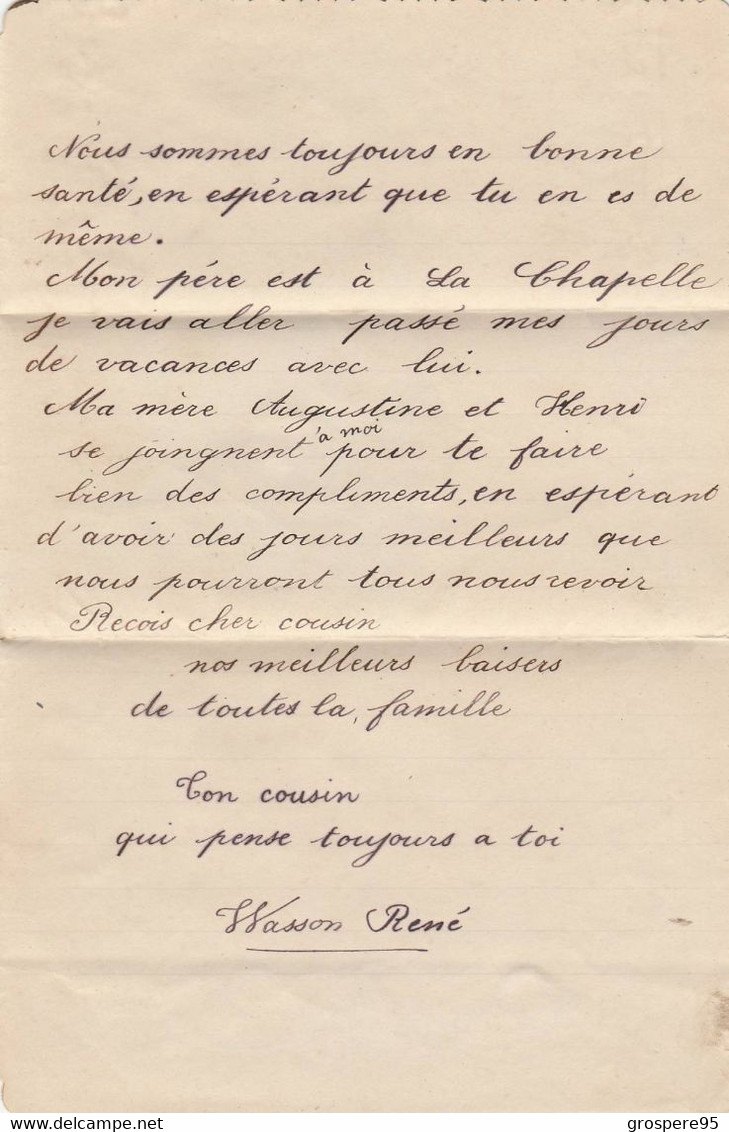 Nous sommes toujours en bonne
santé, en espérant que tu en es de
même.
Mon pére est à La Chapelle
je vais aller passé mes jours
de vacances avec lui.
Ma mère Augustine et Henri
à moi
se joingnent pour te faire
bien des compliments, en espérant
d'avoir des jours meilleurs que
nous pourront tous nous revoir
Recois cher cousin
nos meilleurs baisers
de toutes la famille
Ton cousin
qui pense toujours a toi
Wasson René
www.delcampe.net
grospere95